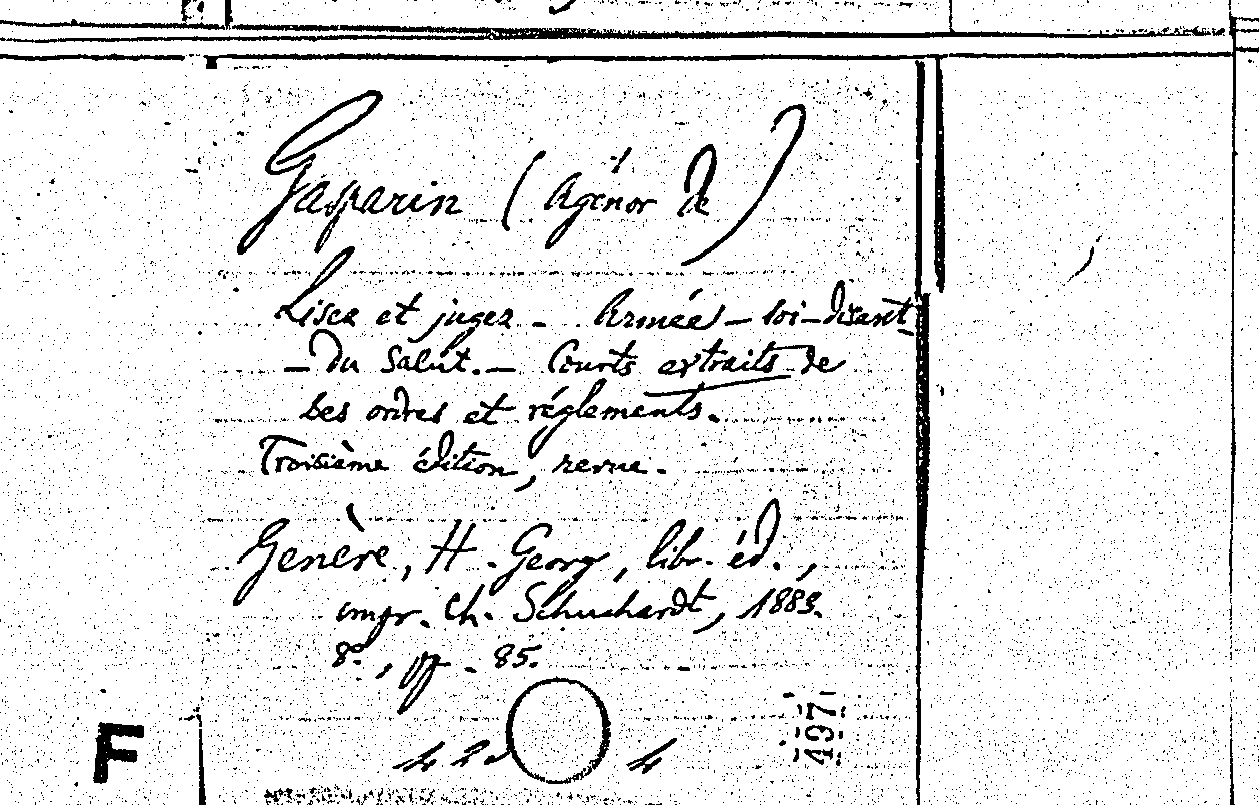 Gasparin (Agénor de)
Lisez et jugez - Armée - soi-disant
- du Salut. - Courts extraits de
ses ordres et réglements.
Troisième édition, revue.
Genève, H. Georg, libr. éd.,
impr. Ch. Schuchardt, 1883.
8°, pp. 85.
497
F